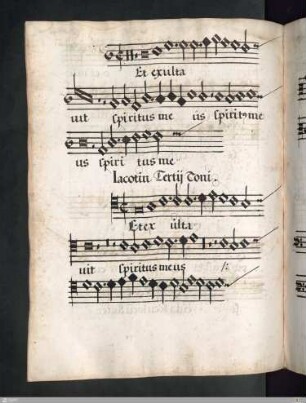 Et exulta
uit spiritus me us spiritus me
us spiri tus me
Iacotin Tertij Toni.
Et ex ulta
uit spiritus meus